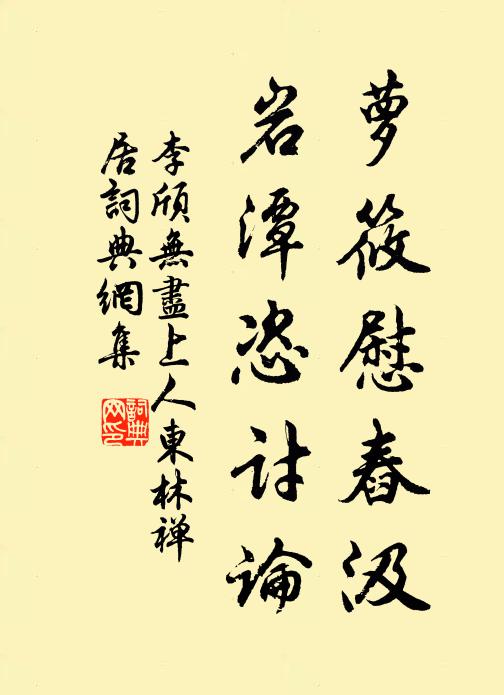 萝筱慰舂汲
岩潭恣讨論
李頎無盡上人東林禅
居詞典網集
詞典网印